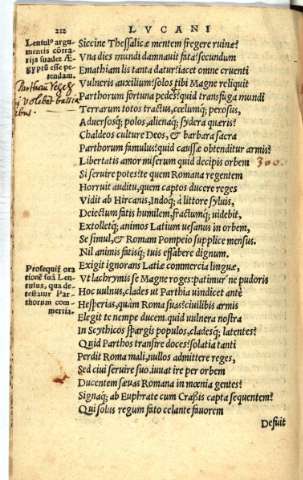 212
LVCANI
Lentulꝰ argu
mentis cõtra
rijs suadet Æ
gyptũ esse pe
tendam.
Siccine Thessalicæ mentem fregere ruinæ?
Vna dies mundi damnauit fata? secundum
Emathiam lis tanta datur? iacet omne cruenti
Vulneris auxilium? solos tibi Magne reliquit
Parthorum fortuna pedes? quid transfuga mundi
Terrarum totos tractus, cœlumq; perosus,
Aduersosq; polos, alienaq; sydera quæris?
Chaldeos culture Deos, & barbara sacra
Parthorum famulus? quid caussæ obtenditur armis?
Libertatis amor? miserum quid decipis orbem
300.
Si seruire potes? te quem Romana regentem
Horruit auditu, quem captos ducere reges
Vidit ab Hircanis, Indoq; à littore syluis,
Deiectum fatis humilem, fractumq; uidebit,
Extolletq; animos Latium uesanus in orbem,
Se simul, & Romam Pompeio supplice mensus.
Nil animis fatisq; tuis effabere dignum.
Prosequit̃ ora
tionẽ suã Len
tulus, qua de-
testatur Par-
thorum com
mertia.
Exigit ignorans Latiæ commercia linguæ,
Vt lachrymis se Magne roges: patimur'ne pudoris
Hoc uulnus, clades ut Parthia uindicet ante
Hesperias, quàm Roma suas? ciuilibus armis
Elegit te nempe ducem. quid uulnera nostra
In Scythicos spargis populos, cladesq; latentes?
Quid Parthos transire doces? solatia tanti
Perdit Roma mali, nullos admittere reges,
Sed ciui seruire suo. iuuat ire per orbem
Ducentem sæuas Romana in mœnia gentes?
Signaq; ab Euphrate cum Crassis capta sequentem?
Qui solus regum fato celante fauorem
Defuit